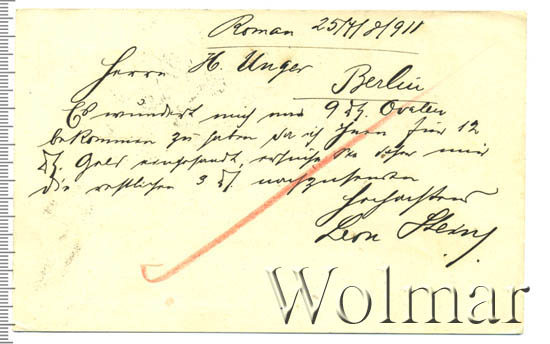 Roman 25/7/8/911
Herrn H. Unger
Berlin
Es wundert mich nur 9 Dtz.
bekommen zu haben da ich Ihnen für 12
Dtz. Geld eingesandt, ersuche Sie daher mir
die restlichen 3 Dtz. nachzusenden
Hochachtend
Leon Stern
Wolmar